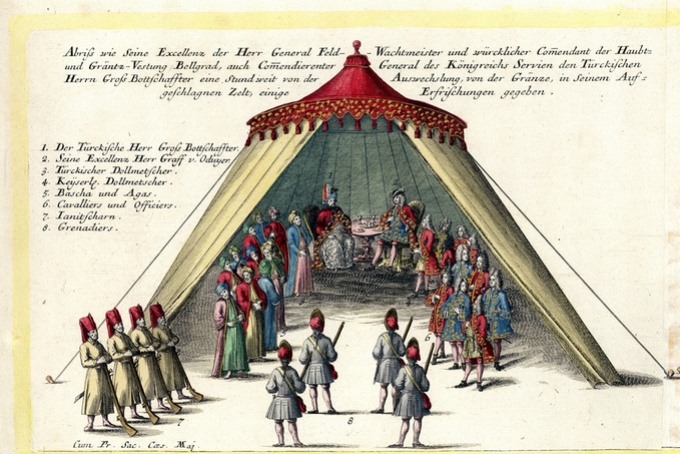 Abriß wie Seine Excellenz der Herr General Feld-Wachtmeister und würcklicher Com̃endant der Haubt=
und Gräntz-Vestung Bellgrad, auch Com̃endierenter General des Königreichs Servien den Türckischen
Herrn Groß Bottschaffter eine Stund weit von der Auswechslung, von der Gränze, in seinem Auf=
geschlagnen Zelt, einige Erfrischungen gegeben.
1. Der Türckische Herr Groß Bottschaffter.
2. Seine Excellenz Herr Graff v. Oduyer.
3. Türckischer Dollmetscher.
4. Keÿserl. Dollmetscher.
5. Bascha und Agas.
6. Cavalliers und Officiers.
7. Ianitscharn.
8. Grenadiers.
1
2
6
7
8
Cum Pr. Sac. Cæs. Maj.